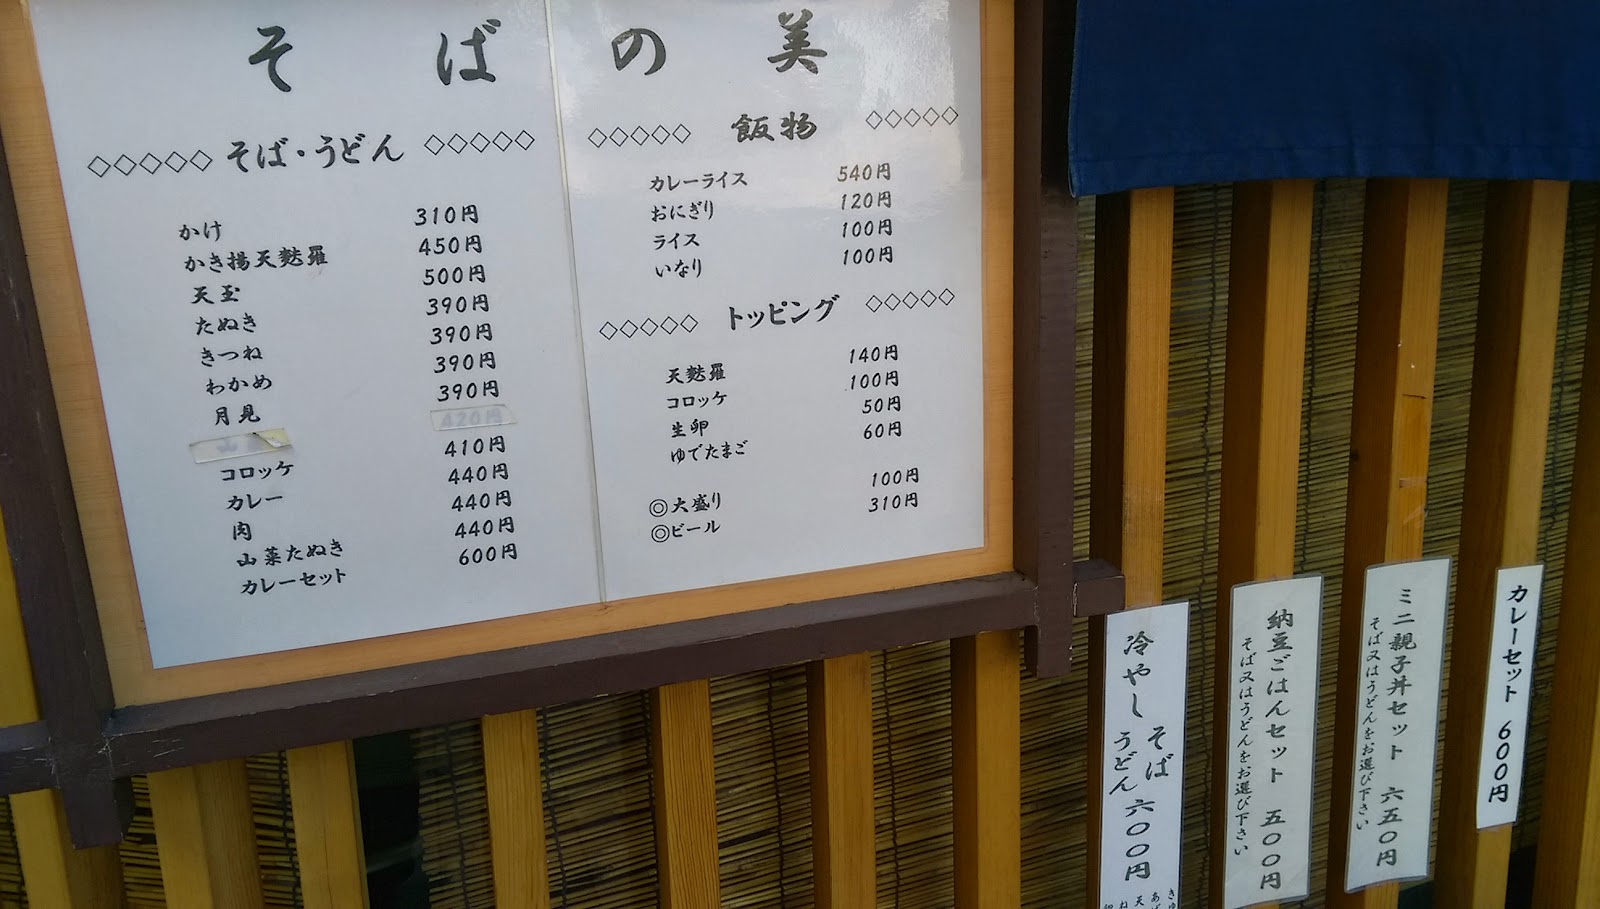 そばの美
◇◇◇◇◇ そば・うどん ◇◇◇◇◇
かけ 310円
かき揚天麩羅 450円
天玉 500円
たぬき 390円
きつね 390円
わかめ 390円
月見 390円
山 420円
コロッケ 410円
カレー 440円
肉 440円
山菜たぬき 440円
カレーセット 600円
◇◇◇◇◇ 飯物 ◇◇◇◇◇
カレーライス 540円
おにぎり 120円
ライス 100円
いなり 100円
◇◇◇◇◇ トッピング ◇◇◇◇◇
天麩羅 140円
コロッケ 100円
生卵 50円
ゆでたまご 60円
◎大盛り 100円
◎ビール 310円
カレーセット 600円
ミニ親子丼セット 六五〇円
そば又はうどんをお選び下さい
納豆ごはんセット 五〇〇円
そば又はうどんをお選び下さい
冷やし そば うどん 六〇〇円